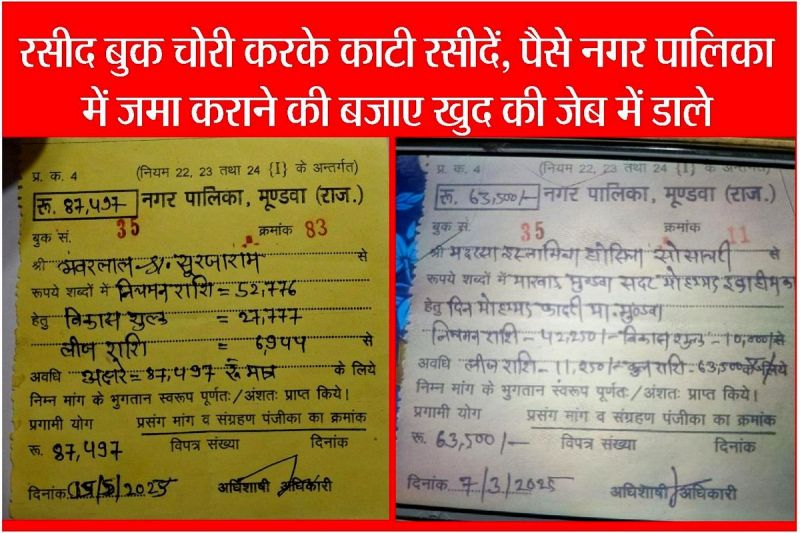 रसीद बुक चोरी करके काटी रसीदें, पैसे नगर पालिका
में जमा कराने की बजाए खुद की जेब में डाले
प्र. क. 4 (नियम 22, 23 तथा 24 {I} के अन्तर्गत)
रू. 87,497 नगर पालिका, मूण्डवा (राज.)
बुक सं. 35 क्रमांक 83
श्री भंवरलाल सुरजाराम से
रूपये शब्दों में नियमन राशि = 52,776
हेतु विकास शुल्क = 27,777
लीज राशि = 6,944 से
अवधि अक्षरे = 87,497 रु मात्र के लिये
निम्न मांग के भुगतान स्वरूप पूर्णतः/अंशतः प्राप्त किये।
प्रगामी योग प्रसंग मांग व संग्रहण पंजीका का क्रमांक
रू. 87,497 विपत्र संख्या दिनांक
दिनांक 15/5/2025 अधिशाषी अधिकारी
प्र. क. 4 (नियम 22, 23 तथा 24 {I} के अन्तर्गत)
रू. 63,500/- नगर पालिका, मूण्डवा (राज.)
बुक सं. 35 क्रमांक 11
श्री मदरसा इस्लामिया सोसायटी से
रूपये शब्दों में मारवाड़ मुण्डवा सदर मोहम्मद
हेतु दिन मोहम्मद कादरी मुण्डवा
नियमन राशि - 42,250/- विकास शुल्क - 10,000/ से
अवधि लीज राशि - 11,250/- कुल राशि - 63,500 के लिये
निम्न मांग के भुगतान स्वरूप पूर्णतः/अंशतः प्राप्त किये।
प्रगामी योग प्रसंग मांग व संग्रहण पंजीका का क्रमांक
रू. 63,500/- विपत्र संख्या दिनांक
दिनांक 7/3/2025 अधिशाषी अधिकारी